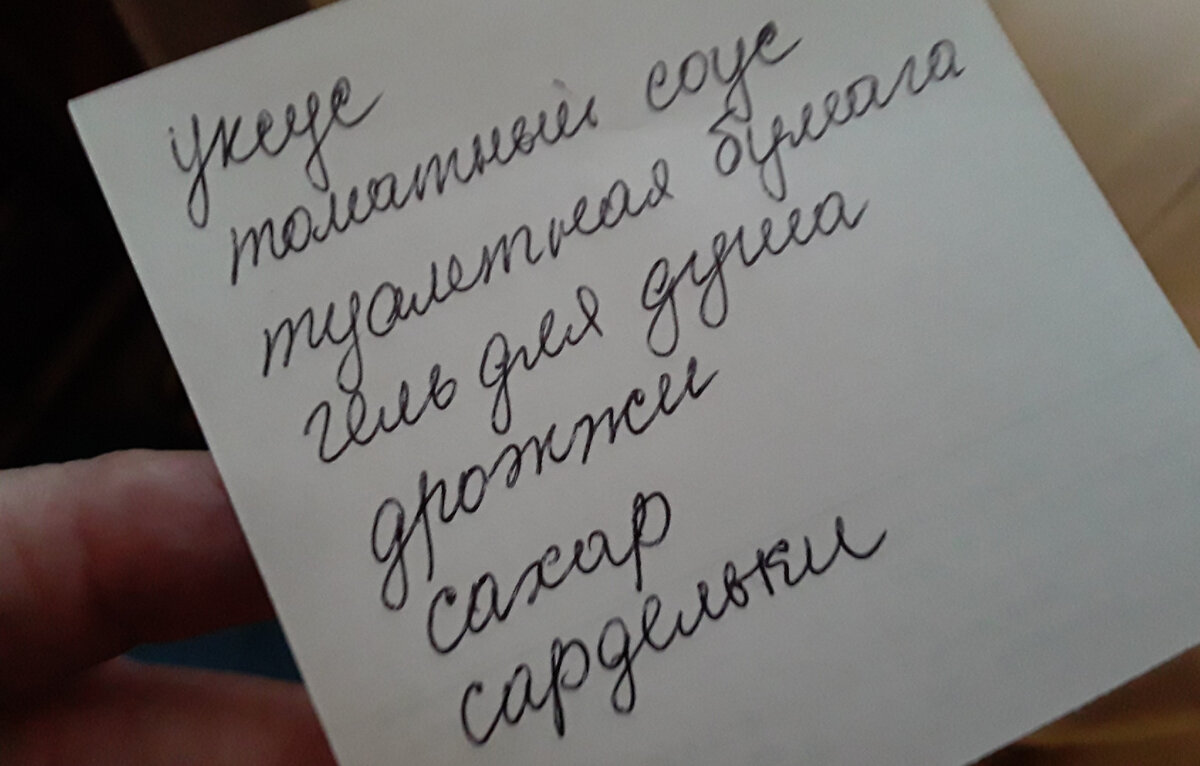 уксус
томатный соус
туалетная бумага
гель для душа
дрожжи
сахар
сардельки